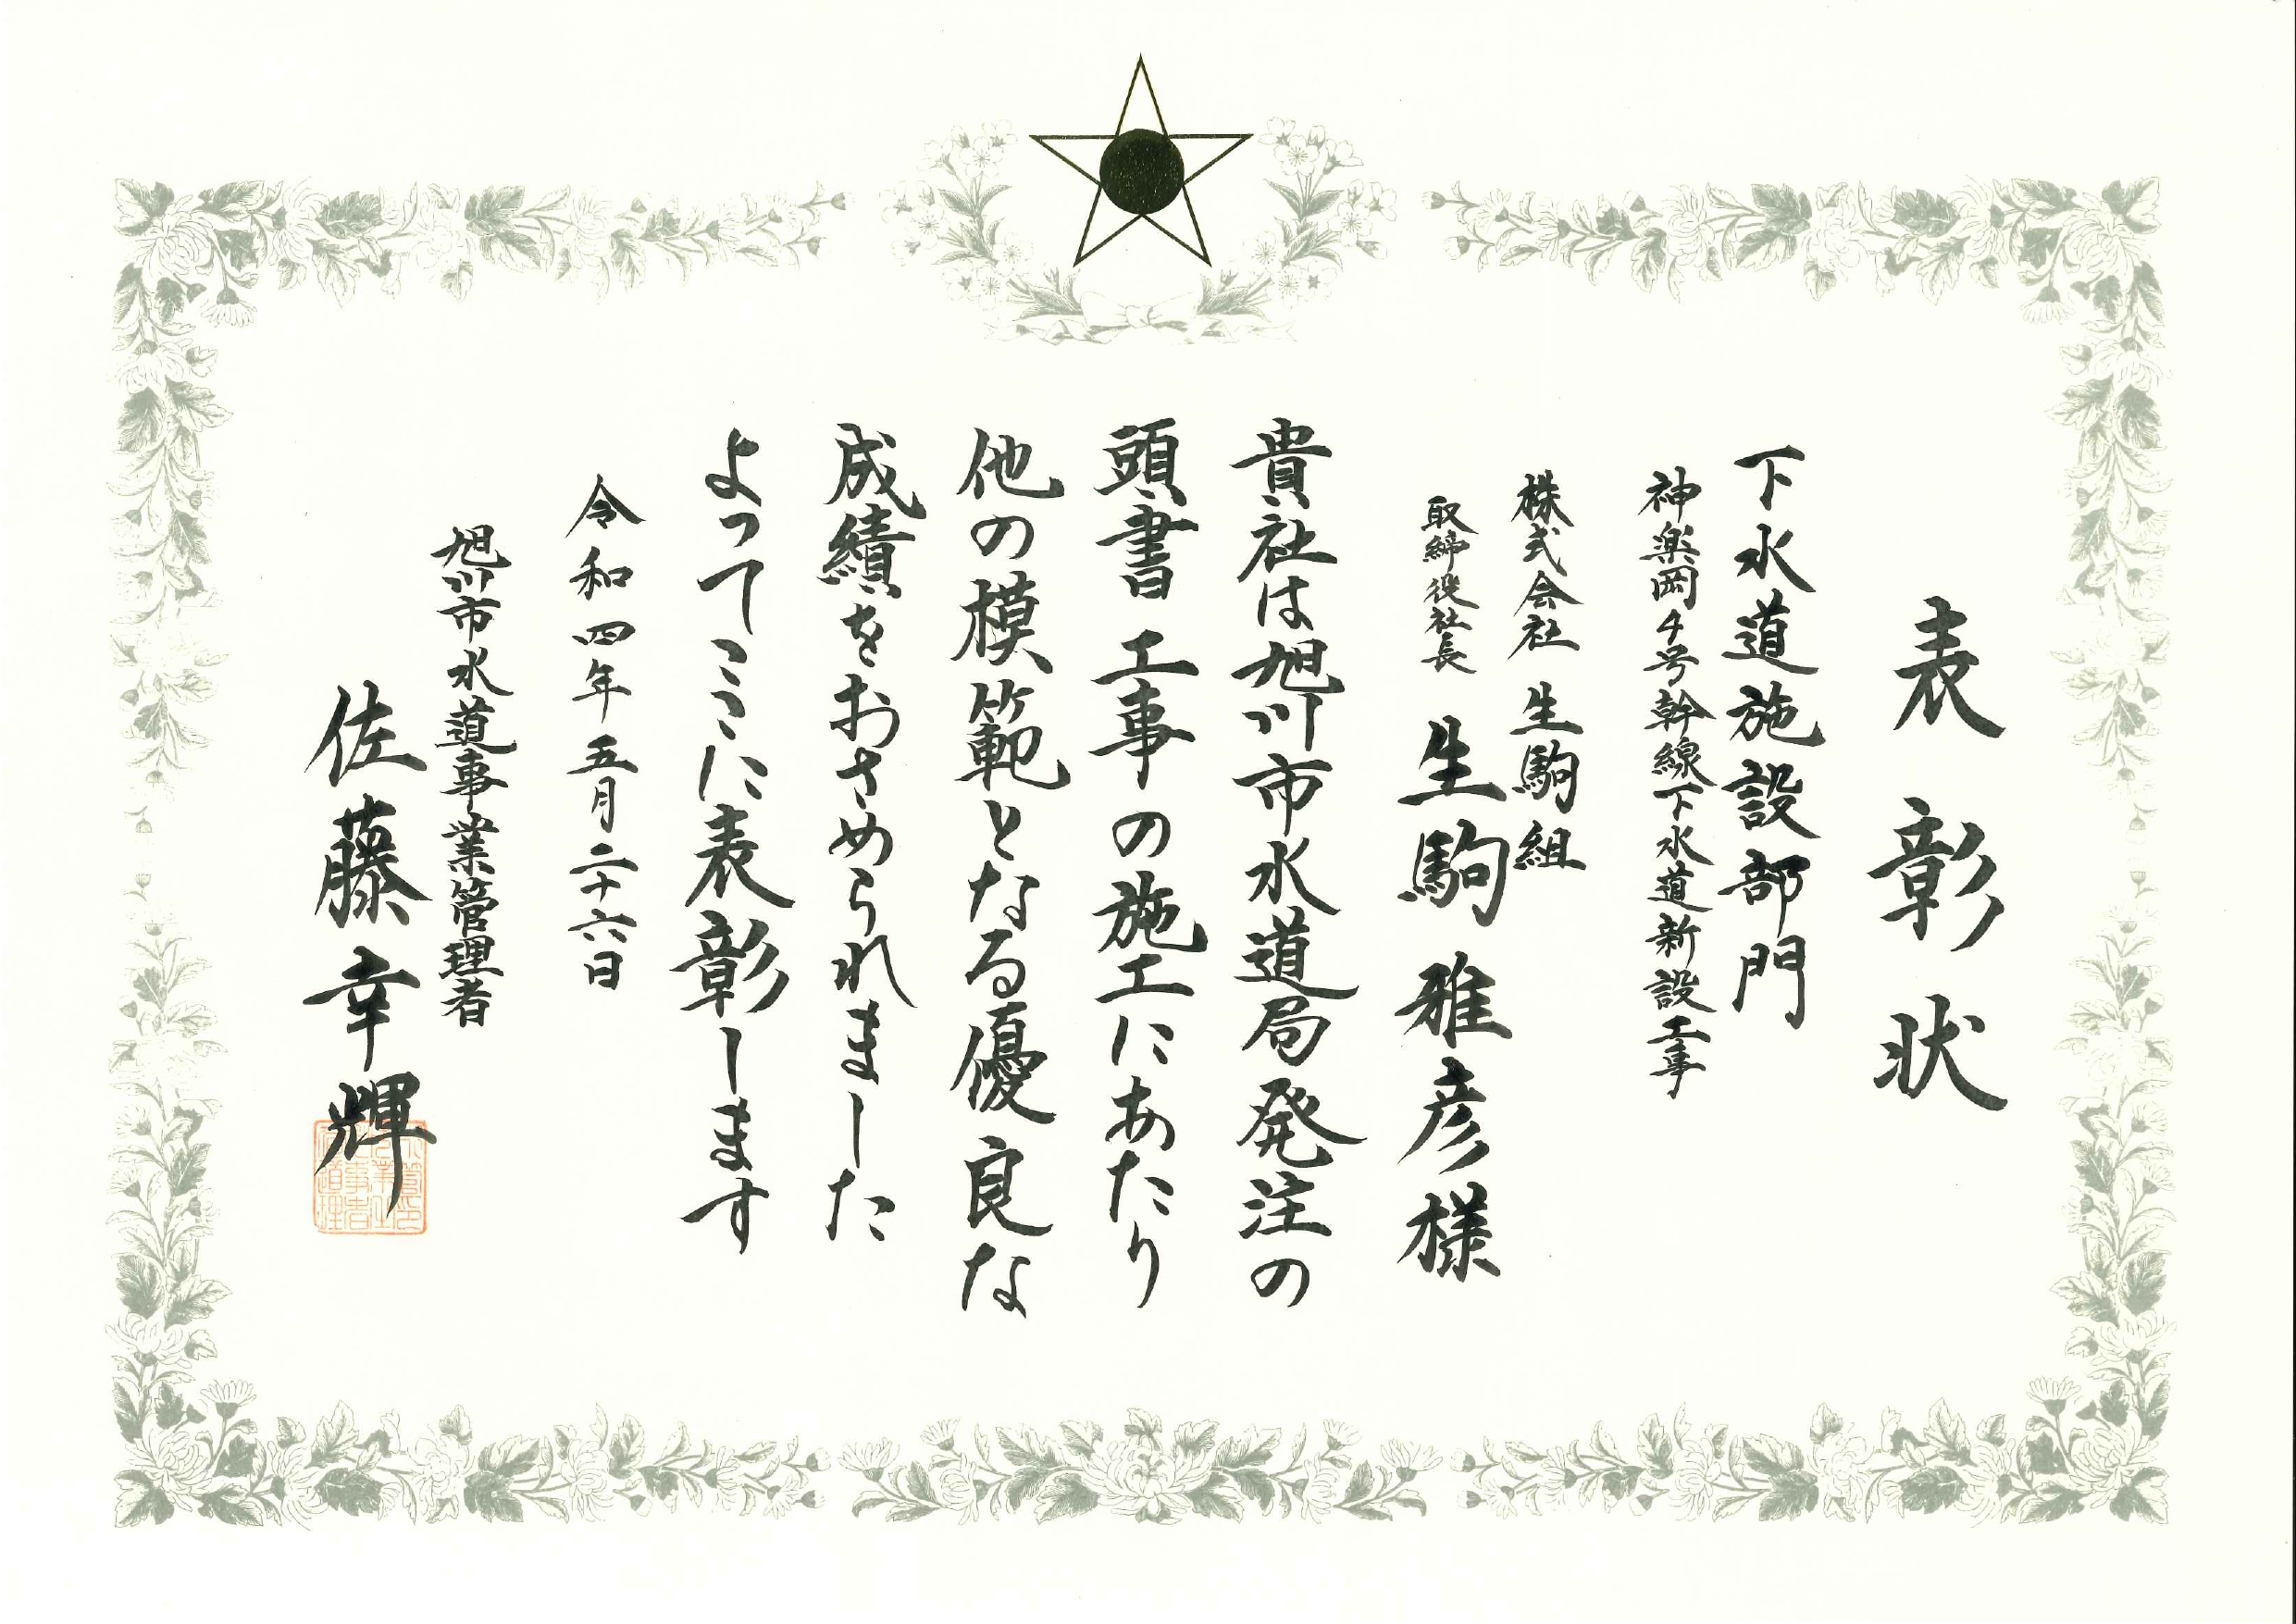 表彰状
下水道施設部門
神楽岡4号幹線下水道新設工事
株式会社 生駒組
取締役社長 生駒雅彦様
貴社は旭川市水道局発注の
頭書工事の施工にあたり
他の模範となる優良な
成績をおさめられました
よってここに表彰します
令和四年五月二十六日
旭川市水道事業管理者
佐藤幸輝